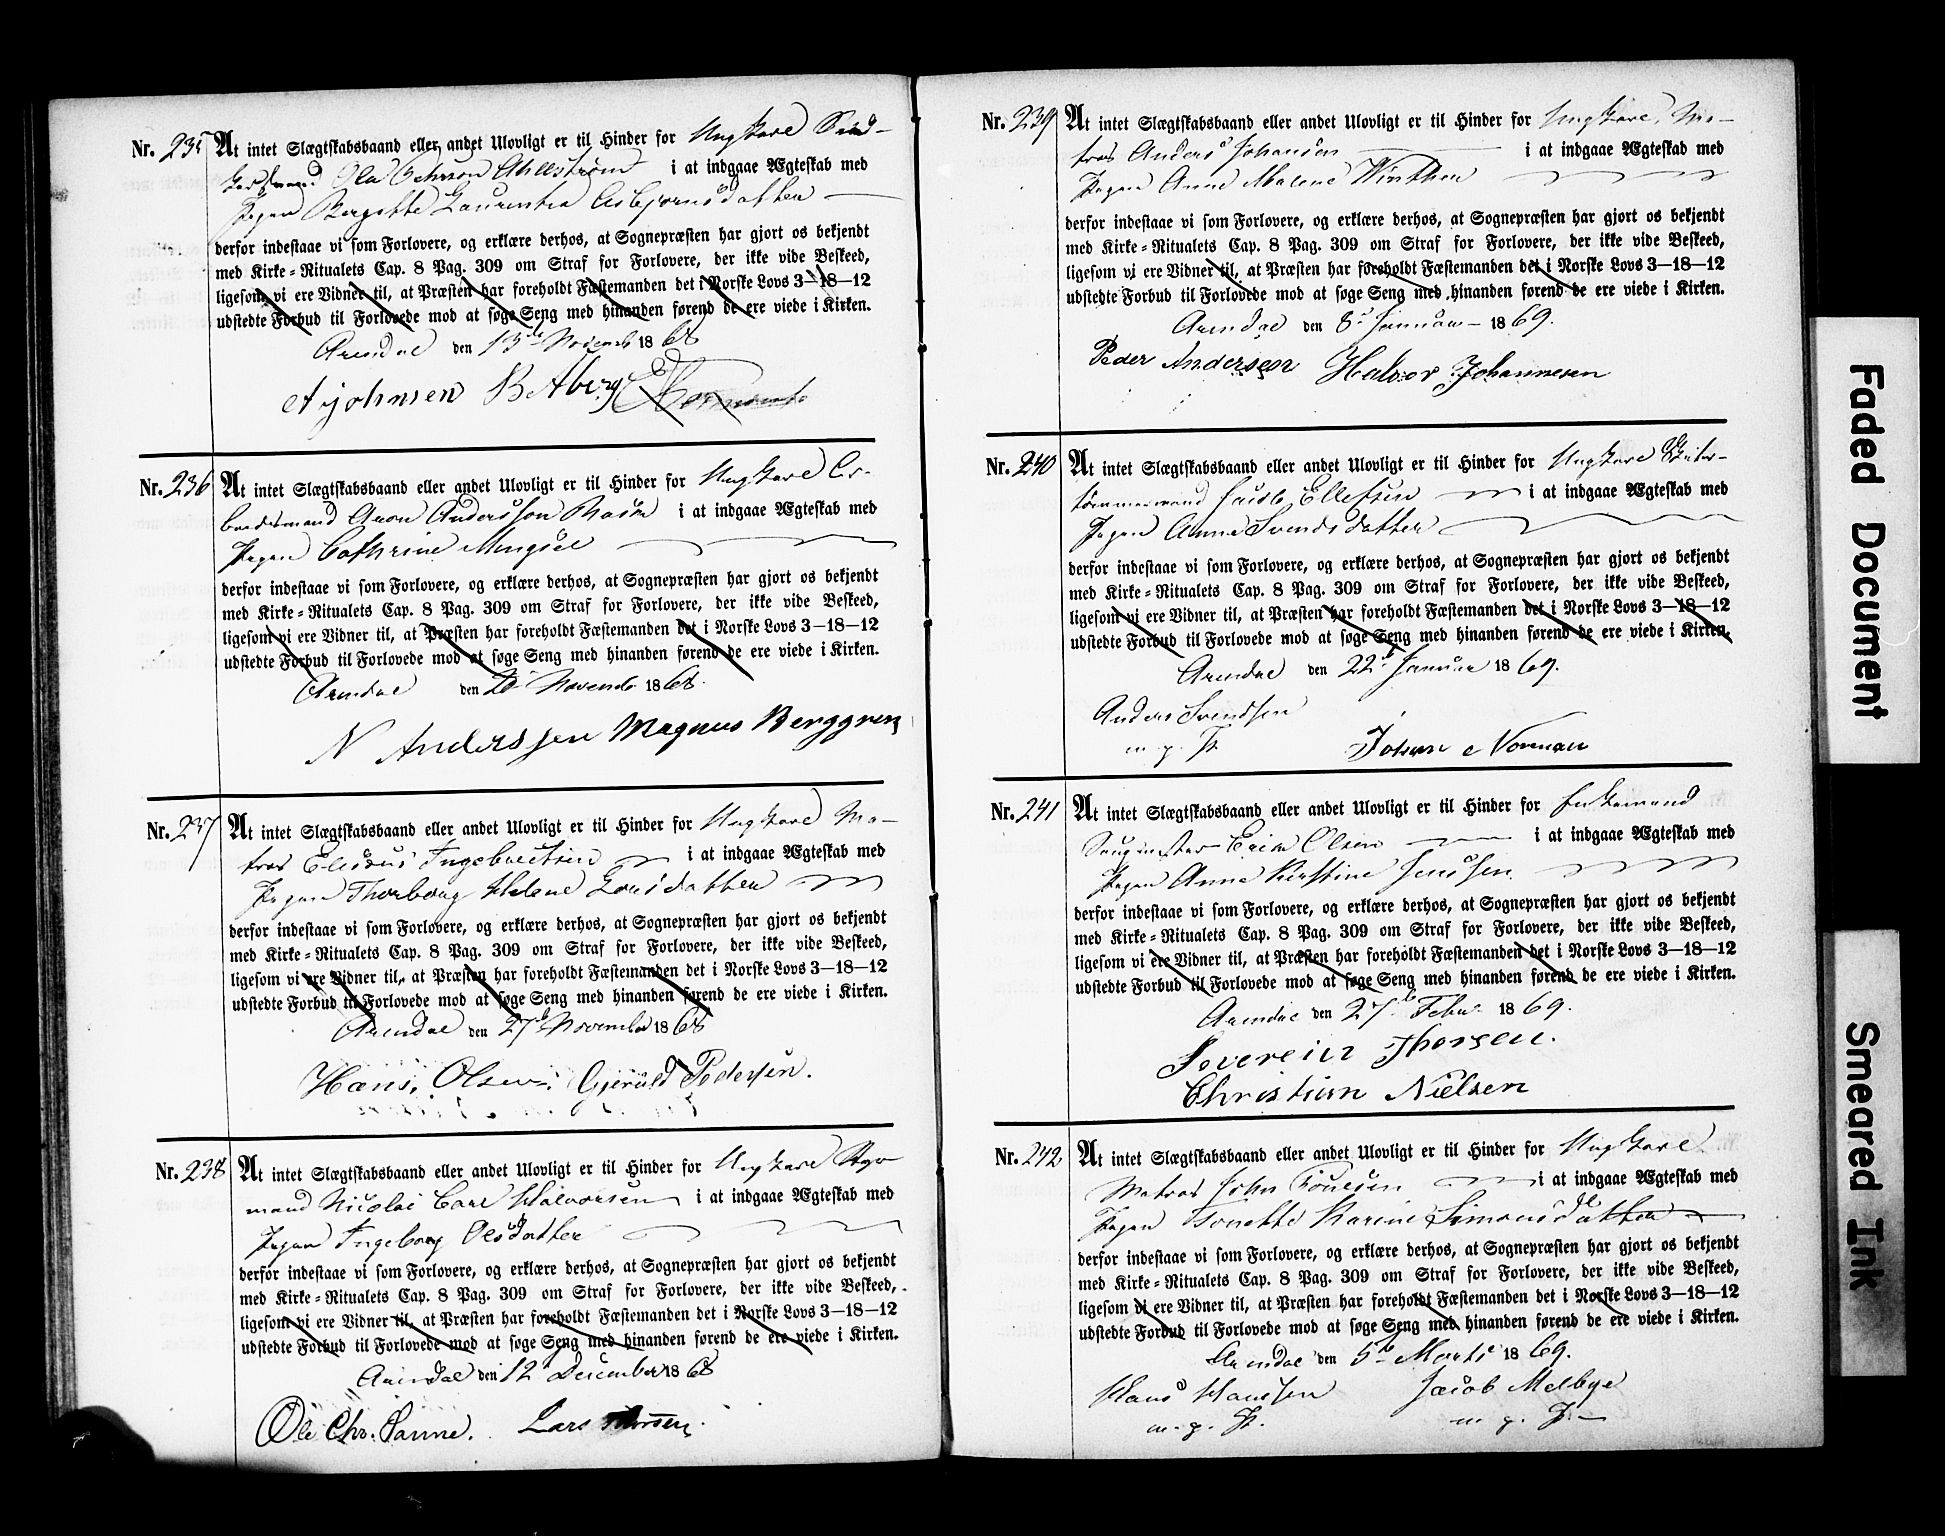 Nr. 235 At intet Slægtskabsbaand eller andet Ulovligt er til Hinder for Ungkarl
Ola Ahllström i at indgaae Ægteskab med
Pigen Bergitte Laurentia Asbjørnsdatter
derfor indestaae vi som Forlovere, og erklære derhos, at Sognepræsten har gjort os bekjendt
med Kirke-Ritualets Cap. 8 Pag. 309 om Straf for Forlovere, der ikke vide Beskeed,
ligesom vi ere Vidner til, at Præsten har foreholdt Fæstemanden det i Norske Lovs 3—18—12
udstedte Forbud til Forlovede mod at søge Seng med hinanden førend de ere viede i Kirken.
Arendal den 13de Novemb 1868
A Johnsen B. Aberg
Nr. 236 At intet Slægtskabsbaand eller andet Ulovligt er til Hinder for Ungkarl Ar-
beidsmand Aron Andersson i at indgaae Ægteskab med
Pigen Cathrine Mingsel
derfor indestaae vi som Forlovere, og erklære derhos, at Sognepræsten har gjort os bekjendt
med Kirke-Ritualets Cap. 8 Pag. 309 om Straf for Forlovere, der ikke vide Beskeed,
ligesom vi ere Vidner til, at Præsten har foreholdt Fæstemanden det i Norske Lovs 3—18—12
udstedte Forbud til Forlovede mod at søge Seng med hinanden førend de ere viede i Kirken.
Arendal den Novemb 1868.
N Anderssen Magnus Berggren
Nr. 237 At intet Slægtskabsbaand eller andet Ulovligt er til Hinder for Ungkarl Ma-
tros Elisæus Ingebretsen i at indgaae Ægteskab med
Pigen Thorborg Helene Larsdatter
derfor indestaae vi som Forlovere, og erklære derhos, at Sognepræsten har gjort os bekjendt
med Kirke-Ritualets Cap. 8 Pag. 309 om Straf for Forlovere, der ikke vide Beskeed,
ligesom vi ere Vidner til, at Præsten har foreholdt Fæstemanden det i Norske Lovs 3—18—12
udstedte Forbud til Forlovede mod at søge Seng med hinanden førend de ere viede i Kirken.
Arendal den 27de November 1868
Hans Olsen. Gjeruld Pedersen.
Nr. 238 At intet Slægtskabsbaand eller andet Ulovligt er til Hinder for Ungkarl Styr
mand Nicolai Carl Halvorsen i at indgaae Ægteskab med
Pigen Ingeborg Olsdatter
derfor indestaae vi som Forlovere, og erklære derhos, at Sognepræsten har gjort os bekjendt
med Kirke-Ritualets Cap. 8 Pag. 309 om Straf for Forlovere, der ikke vide Beskeed,
ligesom vi ere Vidner til, at Præsten har foreholdt Fæstemanden det i Norske Lovs 3—18—12
udstedte Forbud til Forlovede mod at søge Seng med hinanden førend de ere viede i Kirken.
Arendal den 12 December 1868
Ole Chr. Sanne. Lars Thorsen.
Nr. 239 At intet Slægtskabsbaand eller andet Ulovligt er til Hinder for Ungkarl, Ma-
tros Anders Johansen i at indgaae Ægteskab med
Pigen Anne Malene Winther
derfor indestaae vi som Forlovere, og erklære derhos, at Sognepræsten har gjort os bekjendt
med Kirke-Ritualets Cap. 8 Pag. 309 om Straf for Forlovere, der ikke vide Beskeed,
ligesom vi ere Vidner til, at Præsten har foreholdt Fæstemanden det i Norske Lovs 3—18—12
udstedte Forbud til Forlovede mod at søge Seng med hinanden førend de ere viede i Kirken.
Arendal den 8de Januar 1869.
Peder Andersen Halvor Johannesen
Nr. 240 At intet Slægtskabsbaand eller andet Ulovligt er til Hinder for Ungkarl Skibs-
tømmermand Jacob Ellefsen i at indgaae Ægteskab med
Pigen Anne Svendsdatter
derfor indestaae vi som Forlovere, og erklære derhos, at Sognepræsten har gjort os bekjendt
med Kirke-Ritualets Cap. 8 Pag. 309 om Straf for Forlovere, der ikke vide Beskeed,
ligesom vi ere Vidner til, at Præsten har foreholdt Fæstemanden det i Norske Lovs 3—18—12
udstedte Forbud til Forlovede mod at søge Seng med hinanden førend de ere viede i Kirken.
Arendal den 22de Januar 1869.
Anders Svendsen
m. p. P. Johan Norman
Nr. 241 At intet Slægtskabsbaand eller andet Ulovligt er til Hinder for Enkemand
Erik Olsen i at indgaae Ægteskab med
Pigen Anne Kirstine Jensen
derfor indestaae vi som Forlovere, og erklære derhos, at Sognepræsten har gjort os bekjendt
med Kirke-Ritualets Cap. 8 Pag. 309 om Straf for Forlovere, der ikke vide Beskeed,
ligesom vi ere Vidner til, at Præsten har foreholdt Fæstemanden det i Norske Lovs 3—18—12
udstedte Forbud til Forlovede mod at søge Seng med hinanden førend de ere viede i Kirken.
Arendal den 27de Febr 1869.
Severein Thorsen.
Christian Nielsen
Nr. 242 At intet Slægtskabsbaand eller andet Ulovligt er til Hinder for Ungkarl
Matros John i at indgaae Ægteskab med
Pigen Tonette Karine Simonsdatter
derfor indestaae vi som Forlovere, og erklære derhos, at Sognepræsten har gjort os bekjendt
med Kirke-Ritualets Cap. 8 Pag. 309 om Straf for Forlovere, der ikke vide Beskeed,
ligesom vi ere Vidner til, at Præsten har foreholdt Fæstemanden det i Norske Lovs 3—18—12
udstedte Forbud til Forlovede mod at søge Seng med hinanden førend de ere viede i Kirken.
Arendal den 5te Marts 1869.
Hans Hansen Jacob Melbye
m. p. P. m. p. P.
Faded Document
Smeared Ink